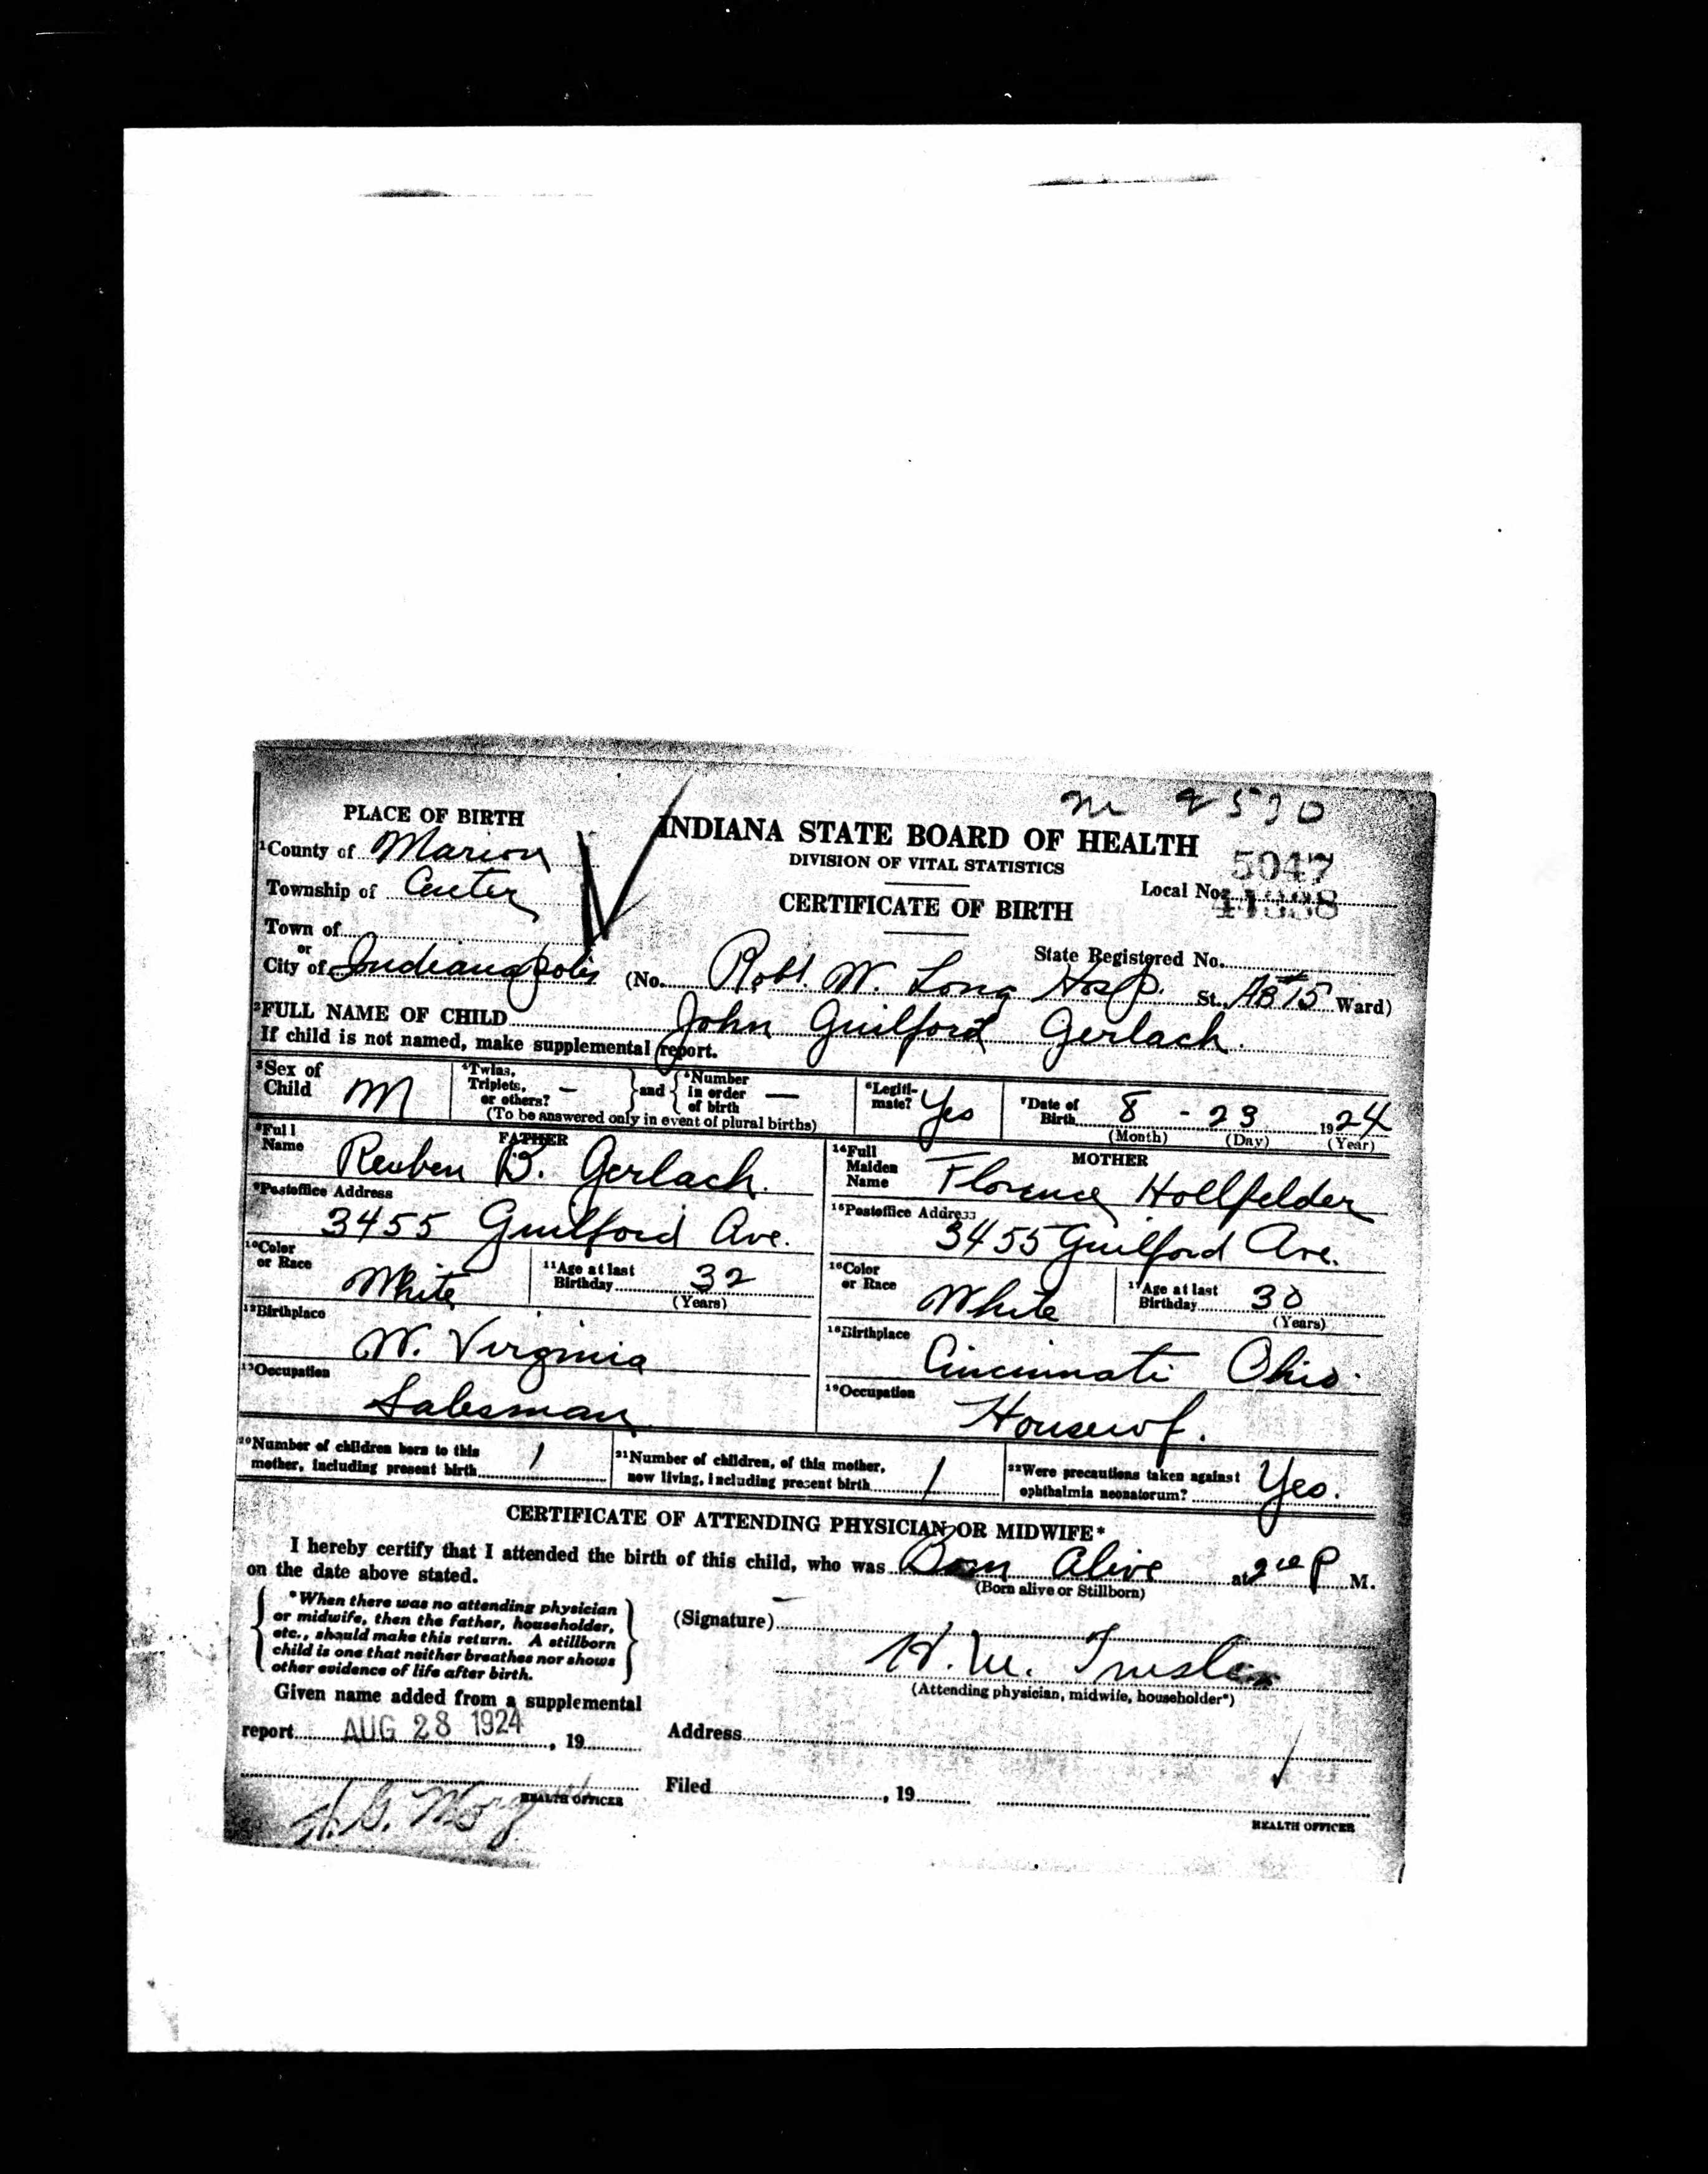 m 2590
PLACE OF BIRTH
INDIANA STATE BOARD OF HEALTH
DIVISION OF VITAL STATISTICS
CERTIFICATE OF BIRTH
¹County of Marion
Township of Center
Town of
or
City of Indianapolis
5047
Local No.
State Registered No.
(No. Robt. W. Long Hosp. St. Ward)
²FULL NAME OF CHILD John Guilford Gerlach.
If child is not named, make supplemental report.
³Sex of Child M
⁴Twins, Triplets, or others? — and ⁵Number in order of birth —
(To be answered only in event of plural births)
⁶Legiti-mate? Yes
⁷Date of Birth 8 - 23 1924
(Month) (Day) (Year)
FATHER
⁸Full Name Reuben B. Gerlach.
⁹Postoffice Address
3455 Guilford Ave.
¹⁰Color or Race White
¹¹Age at last Birthday 32
(Years)
¹²Birthplace
W. Virginia
¹³Occupation
Salesman
MOTHER
¹⁴Full Maiden Name Florence Hollfelder
¹⁵Postoffice Address
3455 Guilford Ave.
¹⁶Color or Race White
¹⁷Age at last Birthday 30
(Years)
¹⁸Birthplace
Cincinnati Ohio.
¹⁹Occupation
Housewf.
²⁰Number of children born to this mother, including present birth 1
²¹Number of children, of this mother, now living, including present birth 1
²²Were precautions taken against ophthalmia neonatorum? Yes.
CERTIFICATE OF ATTENDING PHYSICIAN OR MIDWIFE*
I hereby certify that I attended the birth of this child, who was Born Alive at P M.
(Born alive or Stillborn)
on the date above stated.
*When there was no attending physician
or midwife, then the father, householder,
etc., should make this return. A stillborn
child is one that neither breathes nor shows
other evidence of life after birth.
(Signature)
H. M. Trusler
(Attending physician, midwife, householder*)
Given name added from a supplemental
report AUG 28 1924, 19
Address
HEALTH OFFICER
H. G. Morg
Filed , 19
HEALTH OFFICER